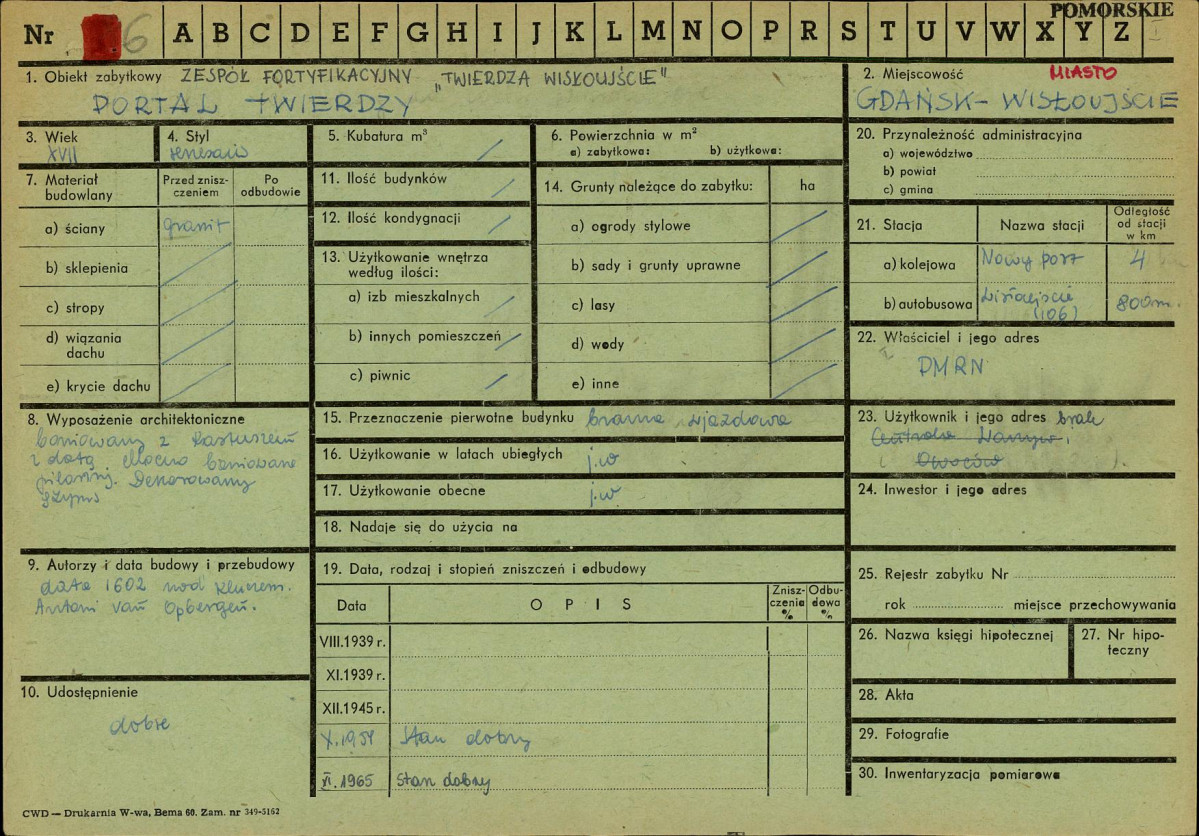 POMORSKIE
Nr 6 A B C D E F G H I J K L M N O P R S T U V W X Y Z
1. Obiekt zabytkowy ZESPÓŁ FORTYFIKACYJNY „TWIERDZA WISŁOUJŚCIE"
PORTAL TWIERDZY
2. Miejscowość MIASTO
GDAŃSK - WISŁOUJŚCIE
3. Wiek
XVII
4. Styl
renesans
5. Kubatura m³
6. Powierzchnia w m²
a) zabytkowa: b) użytkowa:
20. Przynależność administracyjna
a) województwo
b) powiat
c) gmina
7. Materiał budowlany
Przed znisz-
czeniem
Po
odbudowie
a) ściany granit
b) sklepienia
c) stropy
d) wiązania
dachu
e) krycie dachu
11. Ilość budynków
12. Ilość kondygnacji
13. Użytkowanie wnętrza
według ilości:
a) izb mieszkalnych
b) innych pomieszczeń
c) piwnic
14. Grunty należące do zabytku: ha
a) ogrody stylowe
b) sady i grunty uprawne
c) lasy
d) wody
e) inne
21. Stacja Nazwa stacji
Odległość
od stacji
w km
a) kolejowa Nowy port 4
b) autobusowa Wisłoujście 800m.
(106)
22. Właściciel i jego adres
PMRN
8. Wyposażenie architektoniczne
boniowany z kartuszem
z datą. Mocno boniowane
pilastry. Dekorowany
gzyms
15. Przeznaczenie pierwotne budynku brama wjazdowa
16. Użytkowanie w latach ubiegłych j.w
17. Użytkowanie obecne j.w
18. Nadaje się do użycia na
23. Użytkownik i jego adres brak
Centrala Warzyw.
i Owoców
24. Inwestor i jego adres
9. Autorzy i data budowy i przebudowy
data 1602 nad kluczem.
Antoni van Opbergen.
19. Data, rodzaj i stopień zniszczeń i odbudowy
Data OPIS
Znisz-
czenia
%
Odbu-
dowa
%
VIII.1939 r.
XI.1939 r.
XII.1945 r.
X.1959 Stan dobry
XI.1965 Stan dobry
25. Rejestr zabytku Nr
rok miejsce przechowywania
26. Nazwa księgi hipotecznej
27. Nr hipo-
teczny
10. Udostępnienie
dobre
28. Akta
29. Fotografie
30. Inwentaryzacja pomiarowa
CWD — Drukarnia W-wa, Bema 60. Zam. nr 349-5162